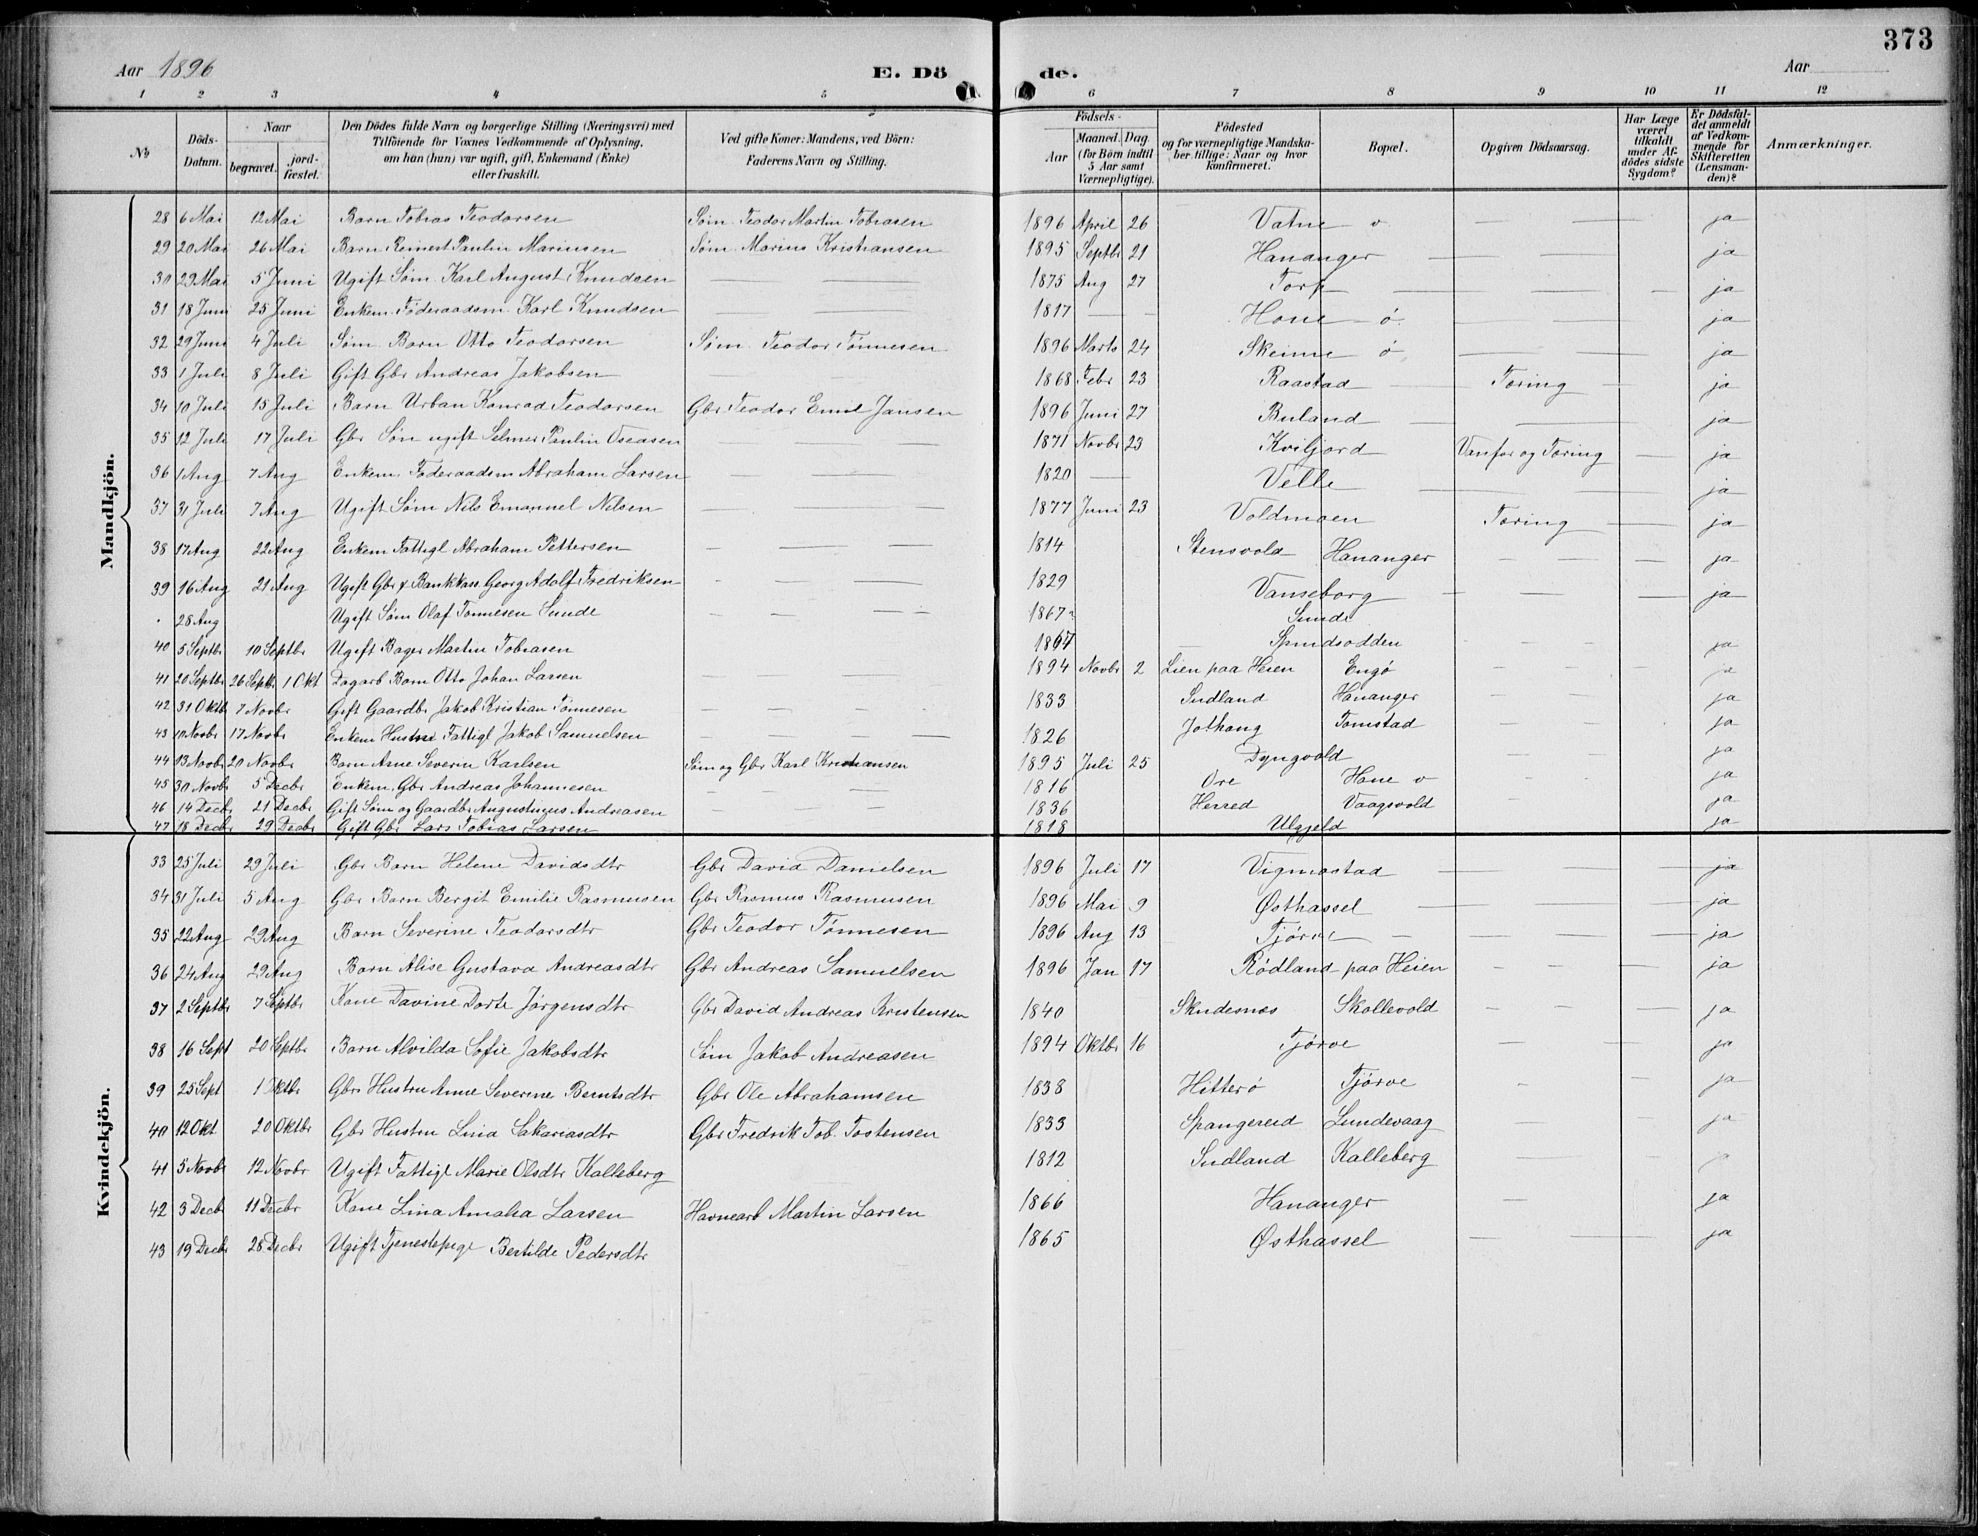 373
Aar 1896 E. Dö de. Aar
1 2 3 4 5 6 7 8 9 10 11 12
No
Döds-Datum.
Naar begravet. jord-fæstet.
Den Dödes fulde Navn og borgerlige Stilling (Næringsvei) med Tilföiende for Voxnes Vedkommende af Oplysning, om han (hun) var ugift, gift, Enkemand (Enke) eller fraskilt.
Ved gifte Koner: Mandens, ved Börn: Faderens Navn og Stilling.
Födsels- Aar Maaned. Dag. (for Börn indtil 5 Aar samt Værnepligtige).
Födested og for værnepligtige Mandskaber tillige: Naar og hvor konfirmeret.
Bopæl.
Opgiven Dödsaarsag.
Har Læge været tilkaldt under Afdödes sidste Sygdom?
Er Dödsfaldet anmeldt af Vedkommende for Skifteretten (Lensmanden)?
Anmærkninger.
Mandkjön.
28 6 Mai 12 Mai Barn Tobias Teodorsen Søm. Teodor Martin Tobiasen 1896 April 26 Vatne v. ja
29 20 Mai 26 Mai Barn Reinert Paulin Marinsen Søm. Marius Kristiansen 1895 Septbr 21 Hananger ja
30 29 Mai 5 Juni Ugift Søm. Karl August Knudsen 1875 Aug 27 Torp ja
31 18 Juni 25 Juni Enkem. Føderaadsm. Karl Knudsen 1817 Hone ø. ja
32 29 Juni 4 Juli Søm. Barn Otto Teodorsen Søm. Teodor Tønnesen 1896 Marts 24 Skeime ø. ja
33 1 Juli 8 Juli Gift Gbr Andreas Jakobsen 1868 Febr 23 Raastad Tæring ja
34 10 Juli 15 Juli Barn Urban Konrad Teodorsen Gbr Teodor Emil Jansen 1896 Juni 27 Buland ja
35 12 Juli 17 Juli Gbr Søn ugift Selmer Paulin Oseasen 1871 Novbr 23 Kviljord Vanfør og Tæring ja
36 1 Aug 7 Aug Enkem. Føderaadsm Abraham Larsen 1820 Velle ja
37 31 Juli 7 Aug Ugift Søm Nils Emanuel Nilsen 1877 Juni 23 Voldmoen Tæring ja
38 17 Aug 22 Aug Enkem Fattigl Abraham Pettersen 1814 Stensvold Hananger ja
39 16 Aug 21 Aug Ugift Gbr & Bankkass Georg Adolf Fredriksen 1829 Vanseborg ja
28 Aug Ugift Søm Olaf Tønnesen Sunde 1867 Sunde
40 5 Septbr 10 Septbr Ugift Bager Martin Tobiasen Spindsodden ja
41 20 Septbr 26 Septbr 1 Okt Dagarb Barn Otto Johan Larsen 1894 Novbr 2 Lien paa Heien Engø ja
42 31 Oktbr 7 Novbr Gift Gaardbr Jakob Kristian Tønnesen 1833 Sudland Hananger ja
43 10 Novbr 17 Novbr Enkem Fattigl Jakob Samuelsen 1826 Tomstad ja
44 13 Novbr 20 Novbr Barn Arne Severin Karlsen Søm og Gbr Karl Kristiansen 1895 Juli 25 Dyngvold ja
45 30 Novbr 5 Decbr Enkem. Gbr Andreas Johannesen 1816 Ore Hane v ja
46 14 Decbr 21 Decbr Gift Søm og Gaardbr Augustinus Andreasen 1836 Herred Vaagsvold ja
47 18 Decbr 29 Decbr Gift Gbr Lars Tobias Larsen 1818 Ulgjeld ja
Kvindekjön.
33 25 Juli 29 Juli Gbr Barn Helene Davidsdtr Gbr David Danielsen 1896 Juli 17 Vigmostad ja
34 31 Juli 5 Aug Gbr Barn Bergit Emilie Rasmusen Gbr Rasmus Rasmusen 1896 Mai 9 Østhassel ja
35 22 Aug 29 Aug Barn Severine Teodorsdtr Gbr Teodor Tønnesen 1896 Aug 13 Tjørve ja
36 24 Aug 29 Aug Barn Alise Gustava Andreasdtr Gbr Andreas Samuelsen 1896 Jan 17 Rødland paa Heien ja
37 2 Septbr 7 Septbr Kone Davine Dorte Jørgensdtr Gbr David Andreas Kristensen 1840 Skudesnæs Skollevold ja
38 16 Sept 20 Septbr Barn Alvilda Sofie Jakobsdtr Søm Jakob Andreasen 1894 Oktbr 16 Tjørve ja
39 25 Sept 1 Oktbr Gbr Hustru Anne Severine Berntsdtr Gbr Ole Abrahamsen 1838 Hitterø Tjørve ja
40 12 Okt 20 Oktbr Gbr Hustru Lina Sakariasdtr Gbr Fredrik Tob. Tostensen 1833 Spangereid Lundevaag ja
41 5 Novbr 12 Novbr Ugift Fattigl Marie Olsdtr Kalleberg 1812 Sudland Kalleberg ja
42 3 Decbr 11 Decbr Kone Lina Amalia Larsen Havnearb Martin Larsen 1866 Hananger ja
43 19 Decbr 28 Decbr Ugift Tjenestepige Bertilde Pedersdtr 1865 Østhassel ja